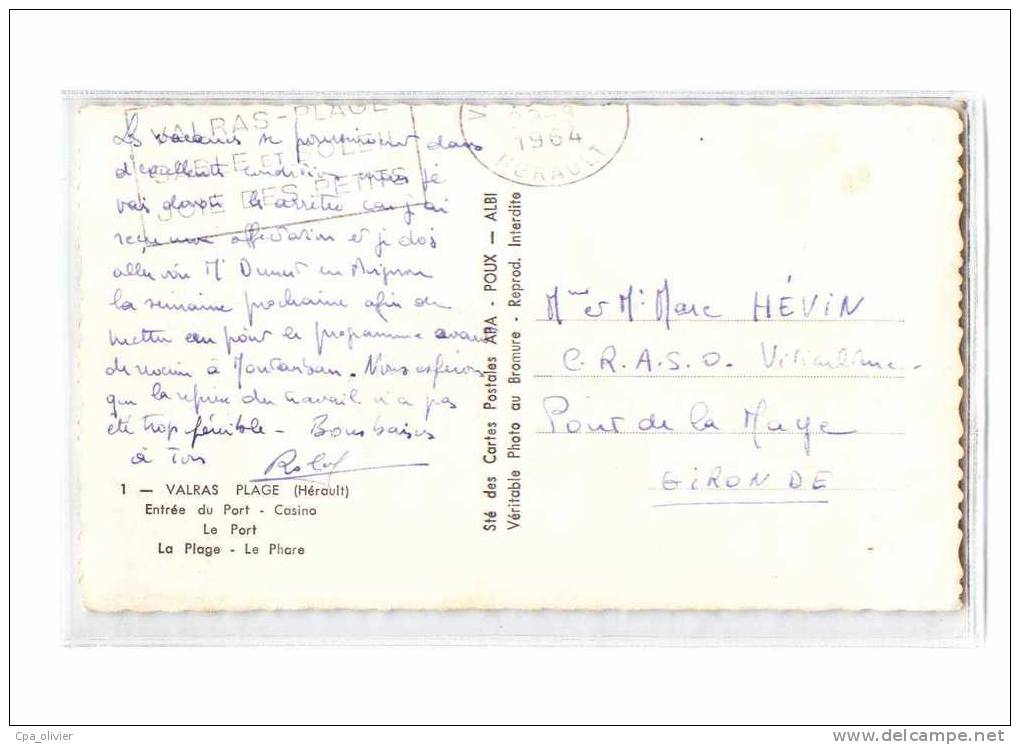 VALRAS-PLAGE
SABLE ET SOLEIL
JOIE DES PETITS
1964
HERAULT
Les vacances se poursuivent dans
d'excellentes conditions mais je
vais devoir les arrêter car j'ai
reçu une affectation et je dois
aller voir Mr en Avignon
la semaine prochaine afin de
mettre au point le programme avant
de venir à Montauban. Nous espérons
que la reprise du travail n'a pas
été trop pénible - Bons baisers
à Tous
1 — VALRAS PLAGE (Hérault)
Entrée du Port - Casino
Le Port
La Plage - Le Phare
Sté des Cartes Postales APA - POUX — ALBI
Véritable Photo au Bromure - Reprod. Interdite
Mme et Mr Marc HÉVIN
C.R.A.S.O. Viticulture.
Pont de la Maye
GIRONDE
Cpa_olivier
delcampe.net